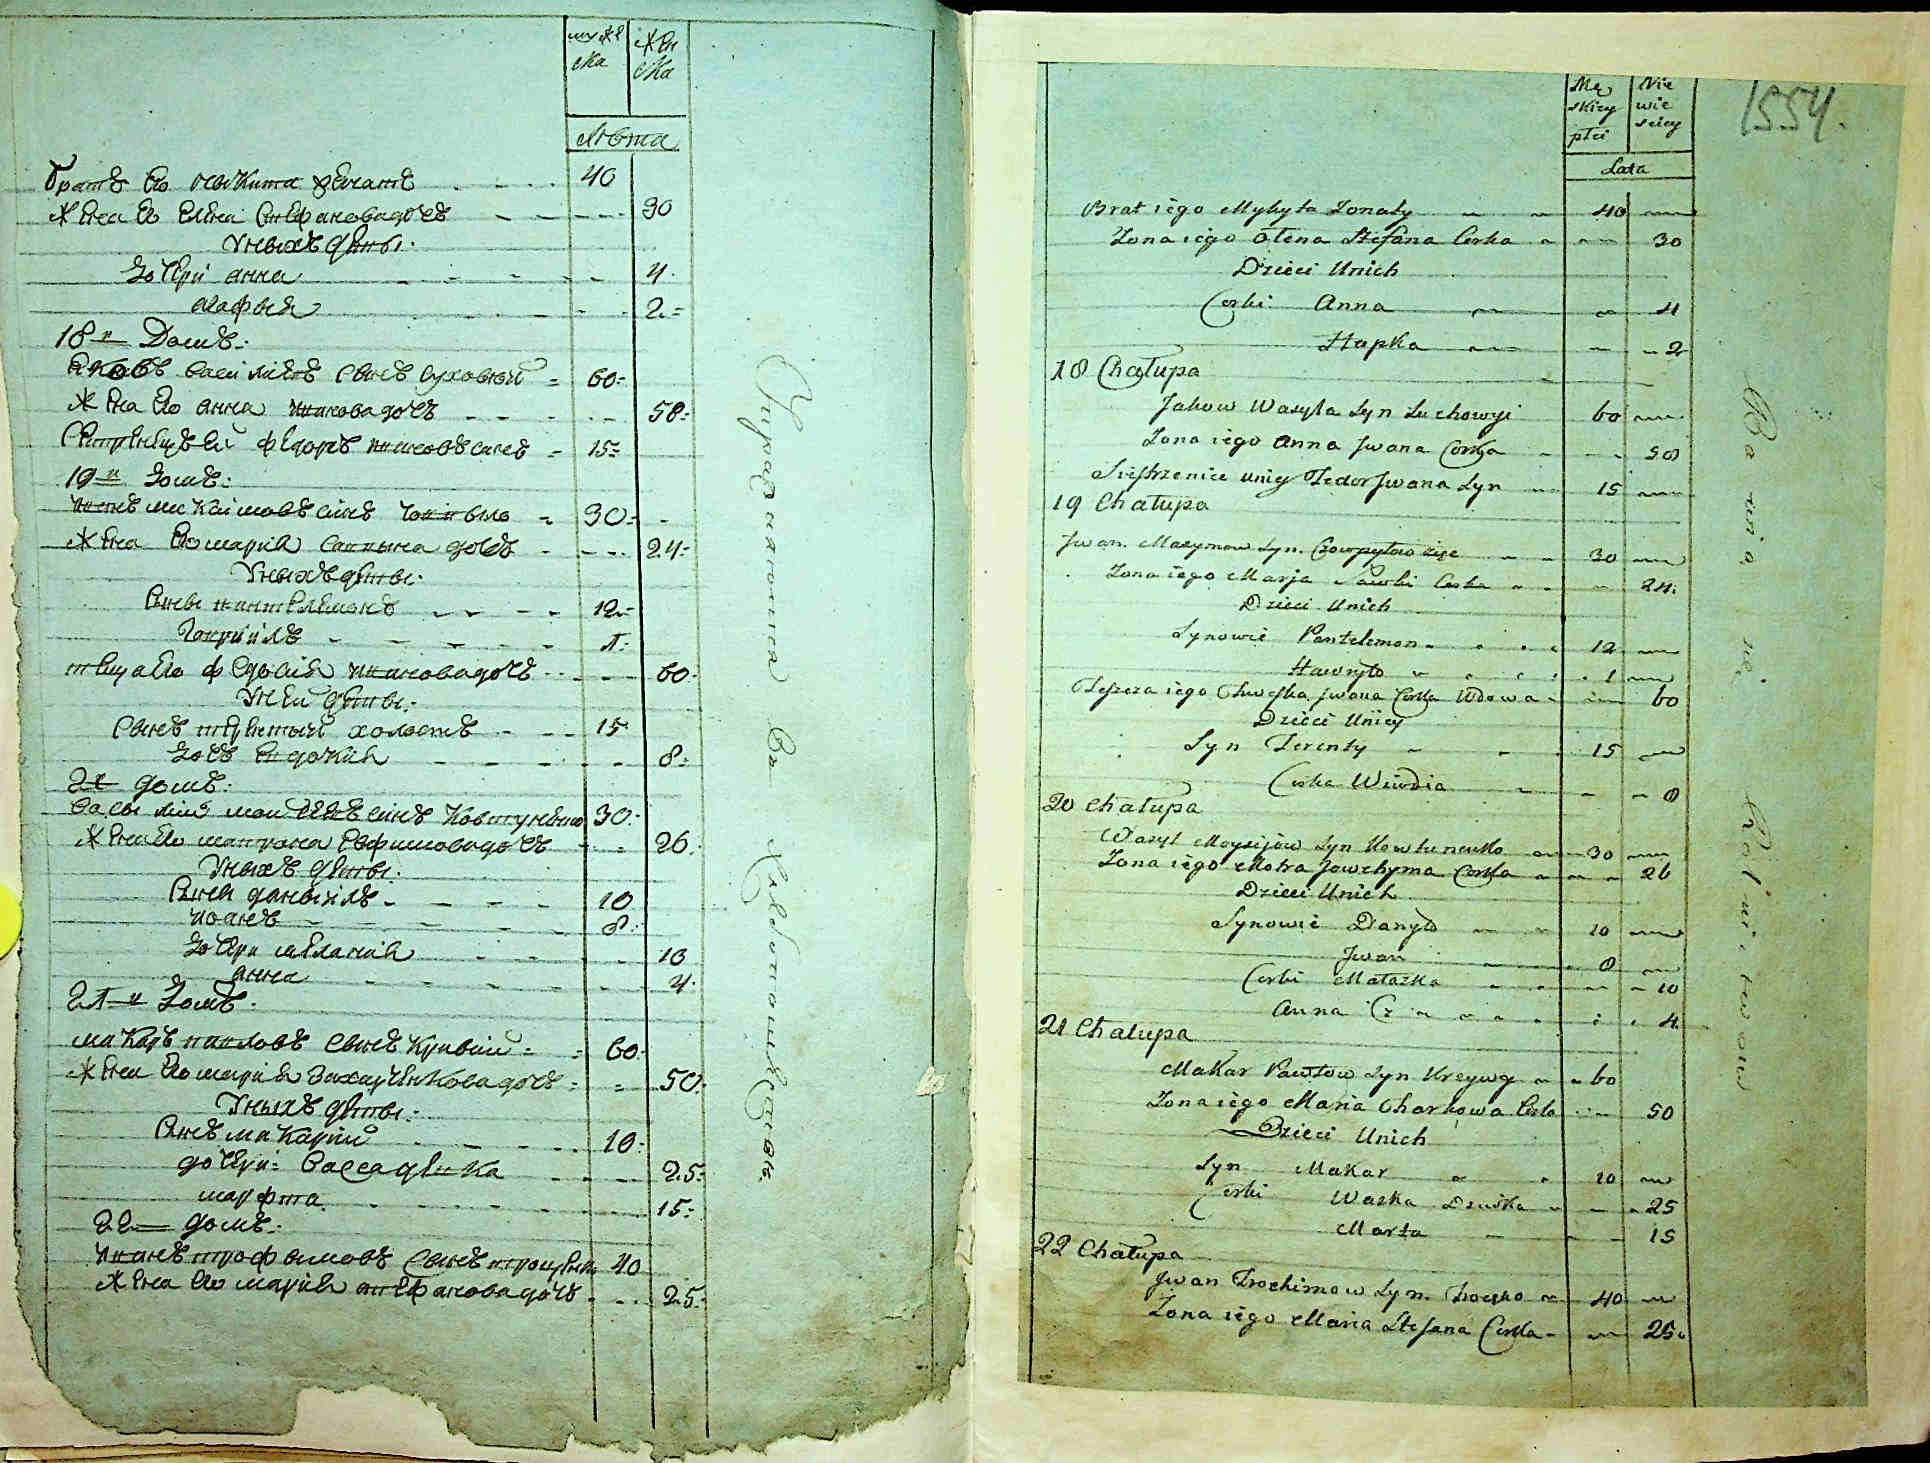 мужеска
женска
лѣта
братъ его никита женатъ 40
жена его елена стефанова дочь 30
У нихъ дѣти:
дочери анна 4
агафия 2
18й Домъ:
Яковъ василиевъ сынъ суховый 60
жена его анна иванова дочь 58
сестренецъ ей федоръ ивановъ сынъ 15
19й домъ:
иванъ максимовъ синъ 30
жена его мария саввина дочь 24
У нихъ дѣти:
сыны пантелемонъ 12
гавриилъ 1
теща его федосия иванова дочь 60
У ней дѣти:
сынъ терентий холостъ 15
дочь евдокия 8
20 домъ:
василий моисеевъ синъ ковтуненко 30
жена его матрона евфимова дочь 26
У нихъ дѣти:
сыны даниилъ 10
иоанъ 8
дочери мелания 10
анна 4
21й домъ:
макаръ павловъ сынъ кривий 60
жена его мария захарченкова дочь 50
У нихъ дѣти:
сынъ макарий 10
дочери: васса дѣвка 25
марфта 15
22 домъ:
иванъ трофимовъ сынъ троценко 40
жена его мария стефанова дочь 25
1554.
Męskiey płci
Niewieściey
Lata
Brat iego Mykyta Zonaty 40
Zona iego Olena Stefana Corka 30
Dzieci Unich
Corki Anna 4
Hapka 2
18 Chałupa
Jakow Wasyla Syn Suchowyi 60
Zona iego Anna Jwana Corka 58
Siestrzenice uniey Fedor Jwana Syn 15
19 Chałupa
Jwan Maxymow Syn 30
Zona iego Marja Sawki Corka 24
Dzieci Unich
Synowie Pantelemon 12
Hawryło 1
Teszcza iego Jwana Corka Wdowa 60
Dzieci Uniey
Syn Terenty 15
Corka Wiwdia 8
20 Chałupa
Wasyl Moysijów Syn Kowtunenko 30
Zona iego Motra Jowchyma Corka 26
Dzieci Unich
Synowie Danyło 10
Jwan 8
Corki Małaszka 10
Anna 4
21 Chałupa
Makar Pawłow Syn Kreywy 60
Zona iego Maria Charkowa Corka 50
Dzieci Unich
Syn Makar 10
Corki Waska Dziwka 25
Marta 15
22 Chałupa
Jwan Trochimow Syn Trocko 40
Zona iego Maria Stefana Corka 25